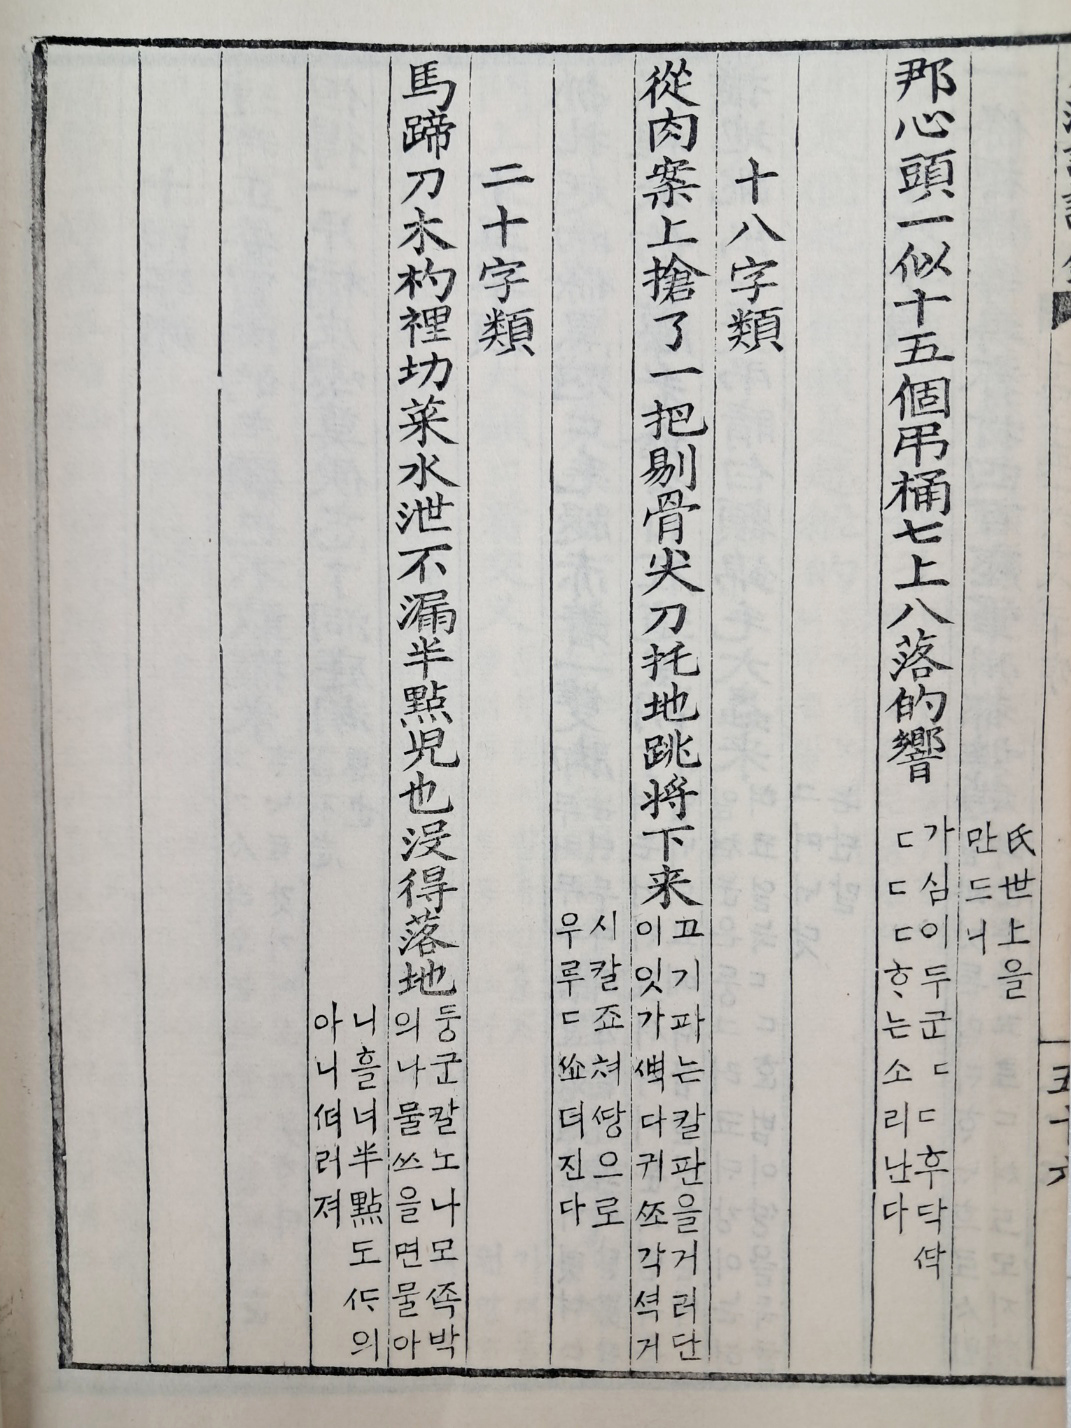 五十六
氏世上을
만드니
那心頭一似十五個吊桶七上八落的響
가심이두군ㄷㄷ후닥싹
ㄷㄷㄷᄒᆞ는소리난다
十八字類
從肉案上搶了一把剔骨尖刀托地跳將下来
고기파는칼판을거러단
이잇가ᄲᅧ다귀ᄯᅩ각셕거
시칼죠쳐ᄯᅡᆼ으로
우루ㄷᄯᅱ더진다
二十字類
馬蹄刀木杓裡切菜水泄不漏半點児也没得落地
둥군칼노나모쪽박
의나물쓰을면물아
니흘녀半點도ᄯᅡ의
아니ᄯᅥ러져